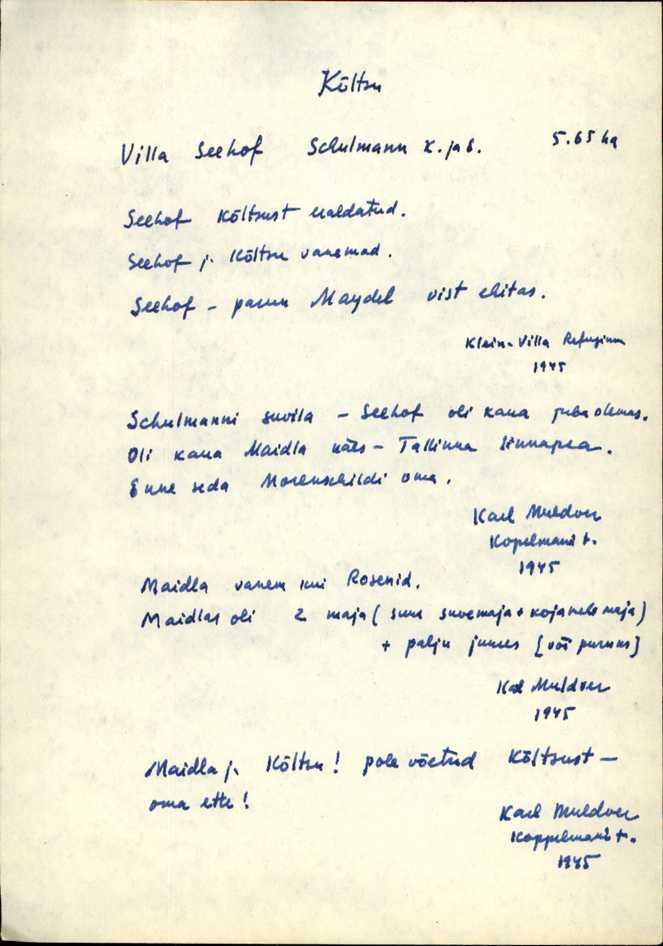 Kõltsu
Villa Seehof Schulmann k. ja b. 5.65 ha
Seehof Kõltsust eraldatud.
Seehof j. Kõltsu vanemad.
Seehof - parun Maydel vist ehitas.
Klein-Villa Refugium
1945
Schulmanni suvila - Seehof oli kaua juba olemas.
Oli kaua Maidla käes - Tallinna linnapea.
Enne seda Morenschildi oma.
Karl Muldver
Kopelmani t.
1945
Maidla vanem kui Rosenid.
Maidlas oli 2 maja (suur suvemaja + kojamehe maja)
+ palju juures [või puruks]
Karl Muldver
1945
Maidla j. Kõltsu! pole võetud Kõltsust -
oma ette!
Karl Muldver
Koppelmani t.
1945